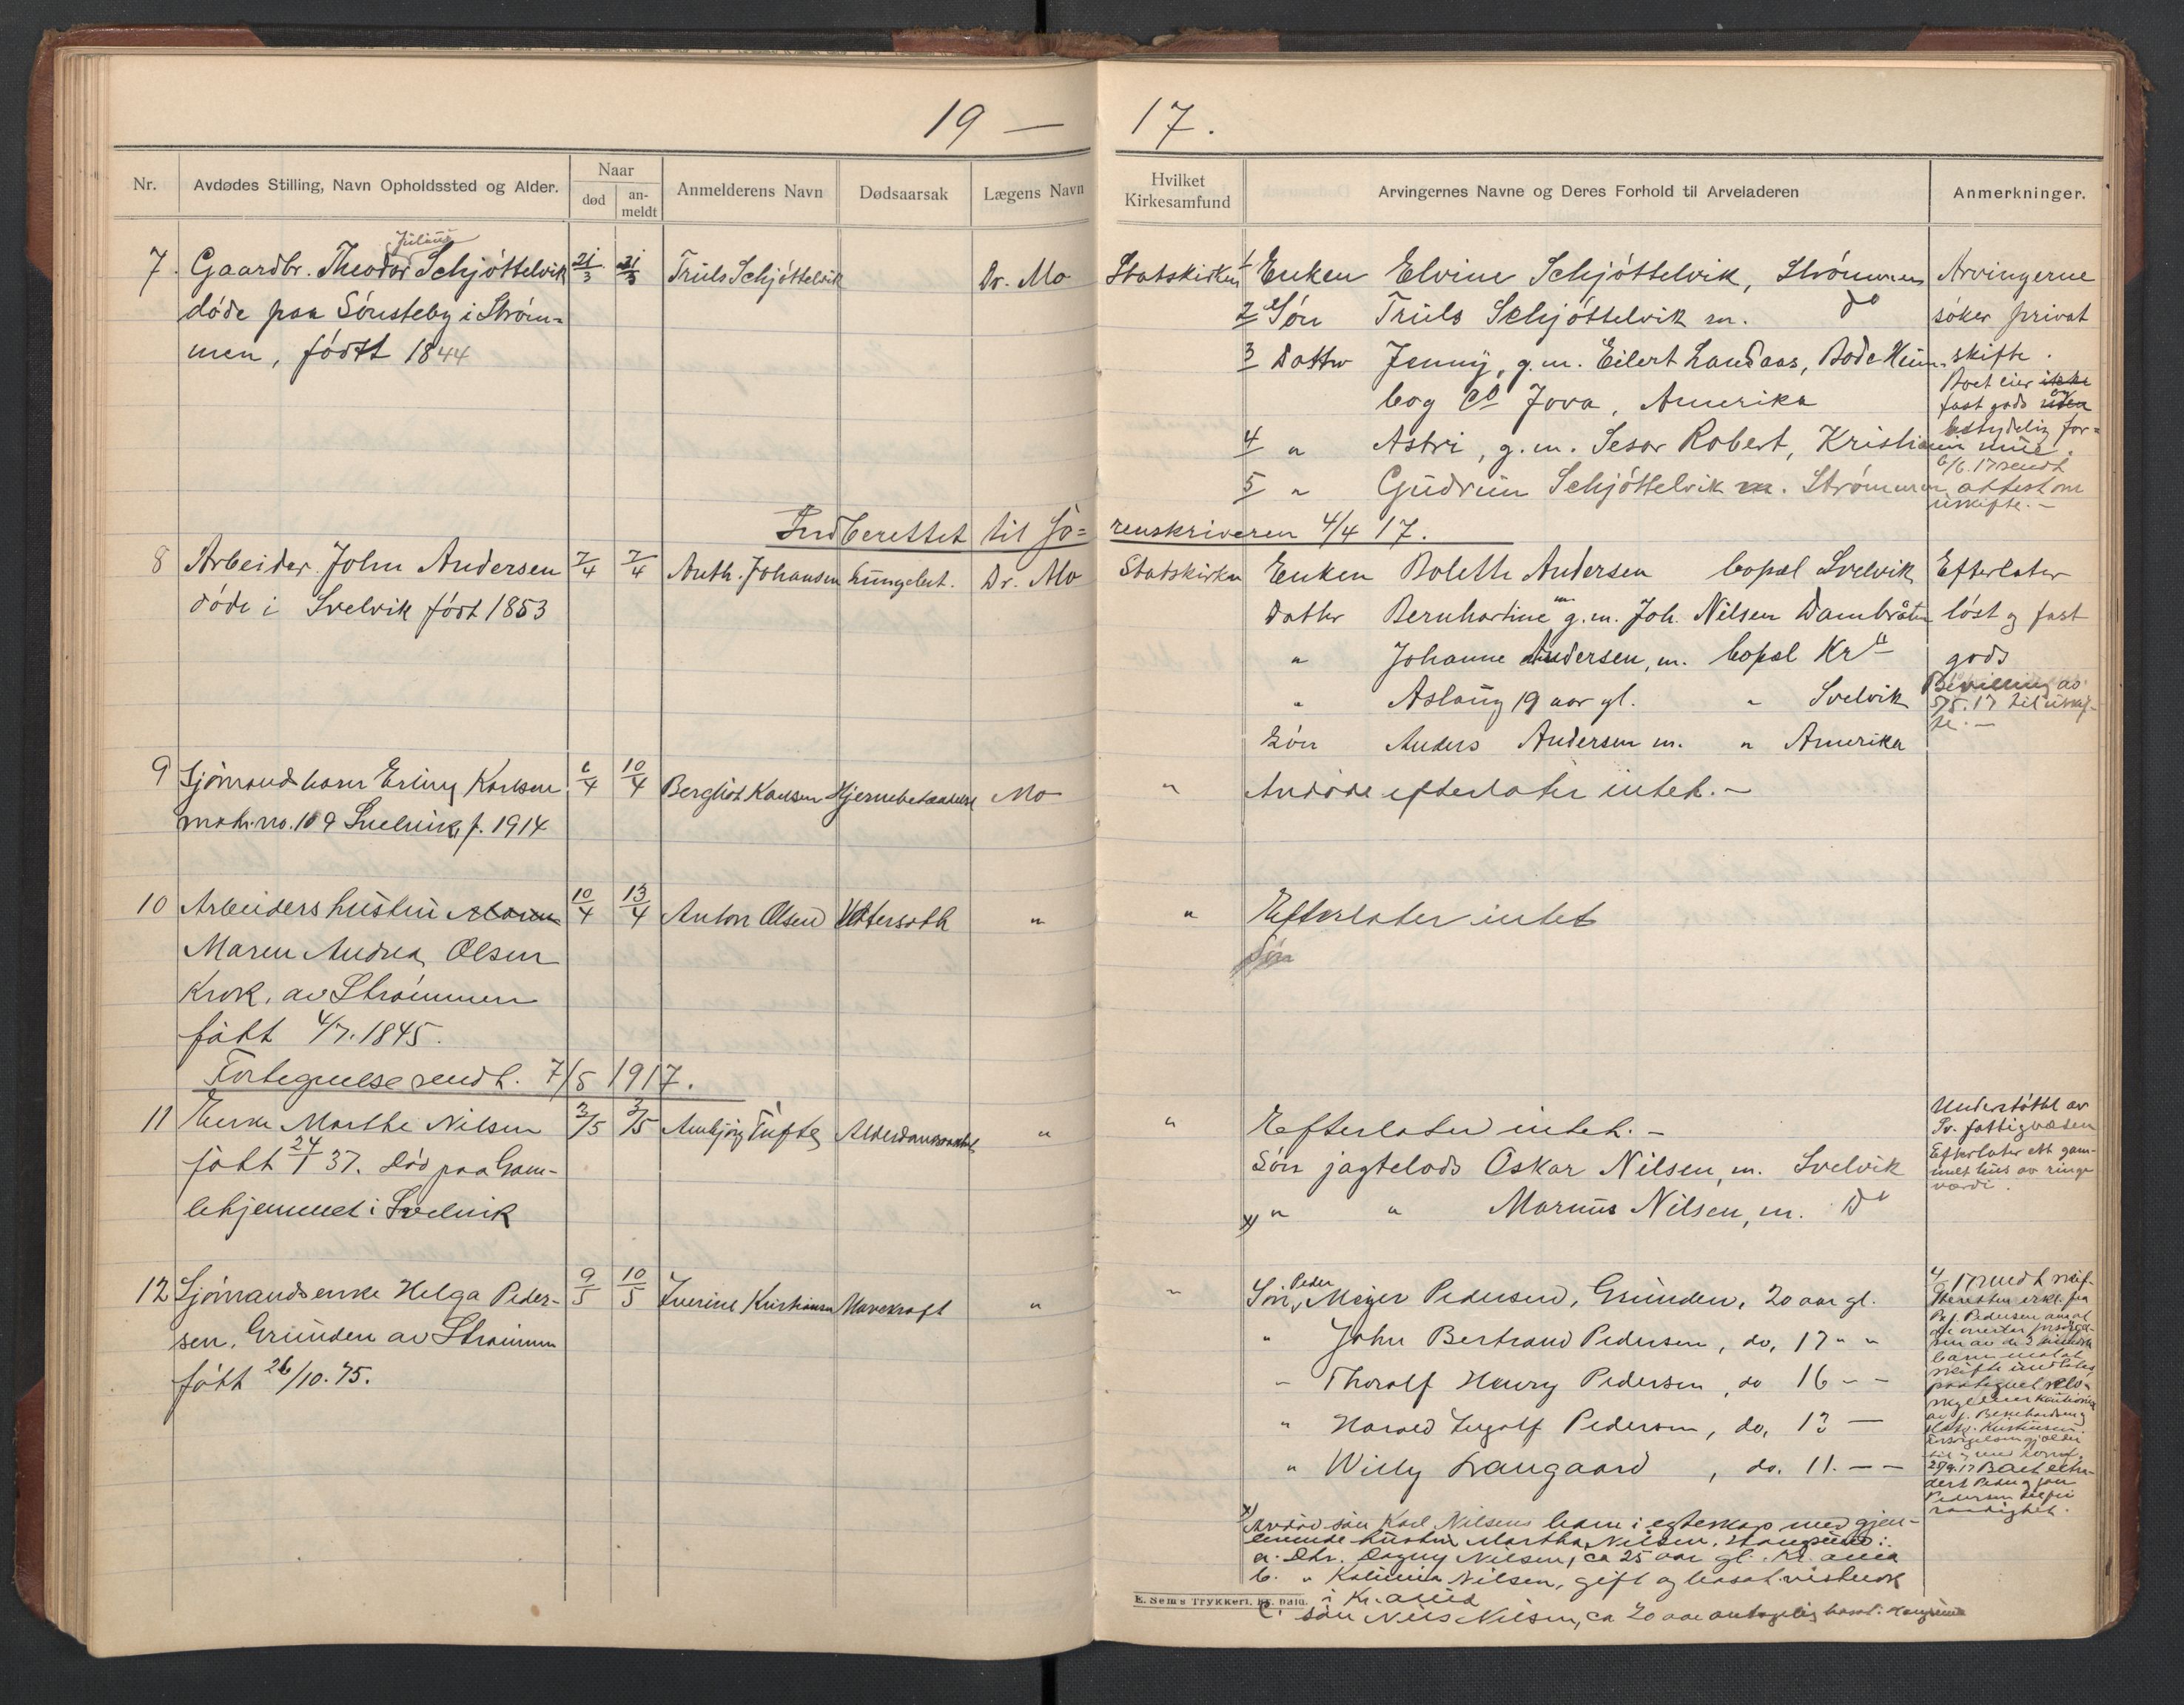 19 — 17.
Nr. Avdødes Stilling, Navn Opholdssted og Alder. Naar død an-meldt Anmelderens Navn Dødsaarsak Lægens Navn Hvilket Kirkesamfund Arvingernes Navne og Deres Forhold til Arveladeren Anmerkninger.
Julius
7. Gaardbr. Theodor Schjøttelvik 21/3 21/3 Truls Schjøttelvik Dr. Mo
døde paa Sønsteby i Strøm-
men, født 1844
Indberettet til So-
8 Arbeider John Andersen 7/4 7/4 Anth. Johansen Lungebet. Dr. Mo
døde i Svelvik født 1853
9 Sjømand barn Erling Karlsen 6/4 10/4 Bergliot Karlsen Hjernebetændelse Mo
matr. no. 109 Svelvik f. 1914
10 Arbeiders hustru Maren 10/4 13/4 Anton Olsen Vattersoth "
Maren Andrea Olsen
Krok. av Strømmen
født 4/7. 1845.
Fortegnelse sendt. 7/5 1917.
11 Enke Marthe Nilsen 3/5 3/5 Ambjørg Tufte "
født 24/1 37. Død paa Gam-
lehjemmet i Svelvik
12 Sjømandsenke Helga Peder- 9/5 10/5 Iverine Kristiansen Mavekraft "
sen, Grunden av Strømmen
født 26/10. 75.
Statskirken 1 Enken Elvine Schjøttelvik, Strømmen
2 Søn Truls Schjøttelvik m. do
3 Datter Jenny, g.m. Eilert Landaas, Bode Hum-
bog Co Jova, Amerika
4 " Astri, g.m. Sesar Robert, Kristiania
5 " Gudrun Schjøttelvik m. Strømmen
Arvingerne
søker privat
skifte.
Boet eier ikke
fast gods uden
betydelig for-
mue.
6/6. 17 sendt
attest om
uskifte. —
renskriveren 4/4 17.
Statskirken Enken Bolette Andersen bopæl Svelvik
Datter Bernhartine m g.m. Joh. Nilsen Dambråten
" Johanne Andersen, m. bopæl Kra
" Aslaug 19 aar gl. " Svelvik
Søn Anders Andersen m. " Amerika
Efterlater
løst og fast
gods
Bevilling av
5/5. 17 til uskif-
te. —
" Avdøde efterlater intet. —
" Efterlater intet
Søn
" Efterlater intet. —
Søn jagtelods Oskar Nilsen, m. Svelvik
x) " " Marius Nilsen, m. Do
Understøttet av
Sv. fattigvæsen
Efterlater ett gam-
melt hus av ringe
værdi.
" Søn, Peder Meyer Pedersen, Grunden, 20 aar gl.
" John Bertrand Pedersen, do, 17 " "
" Thoralf Henry Pedersen, do 16 " "
" Harald Ingolf Pedersen, do, 13 —
" Willy Langaard, do. 11. — —
25/9. 17
Pedersen
raadighet.
x) Avdød søn Karl Nilsens barn i egteskap med gjen-
levende hustru Martha Nilsen, Haugsund:
a. Dtr. Dagny Nilsen, ca 25 aar gl. Kr.ania
b. " Nilsen, gift og bosat
i Kr.ania
c. søn Nils Nilsen, ca 20 aar antagelig bosat i Haugsund
E. Sems Trykkeri, Fr. hald.